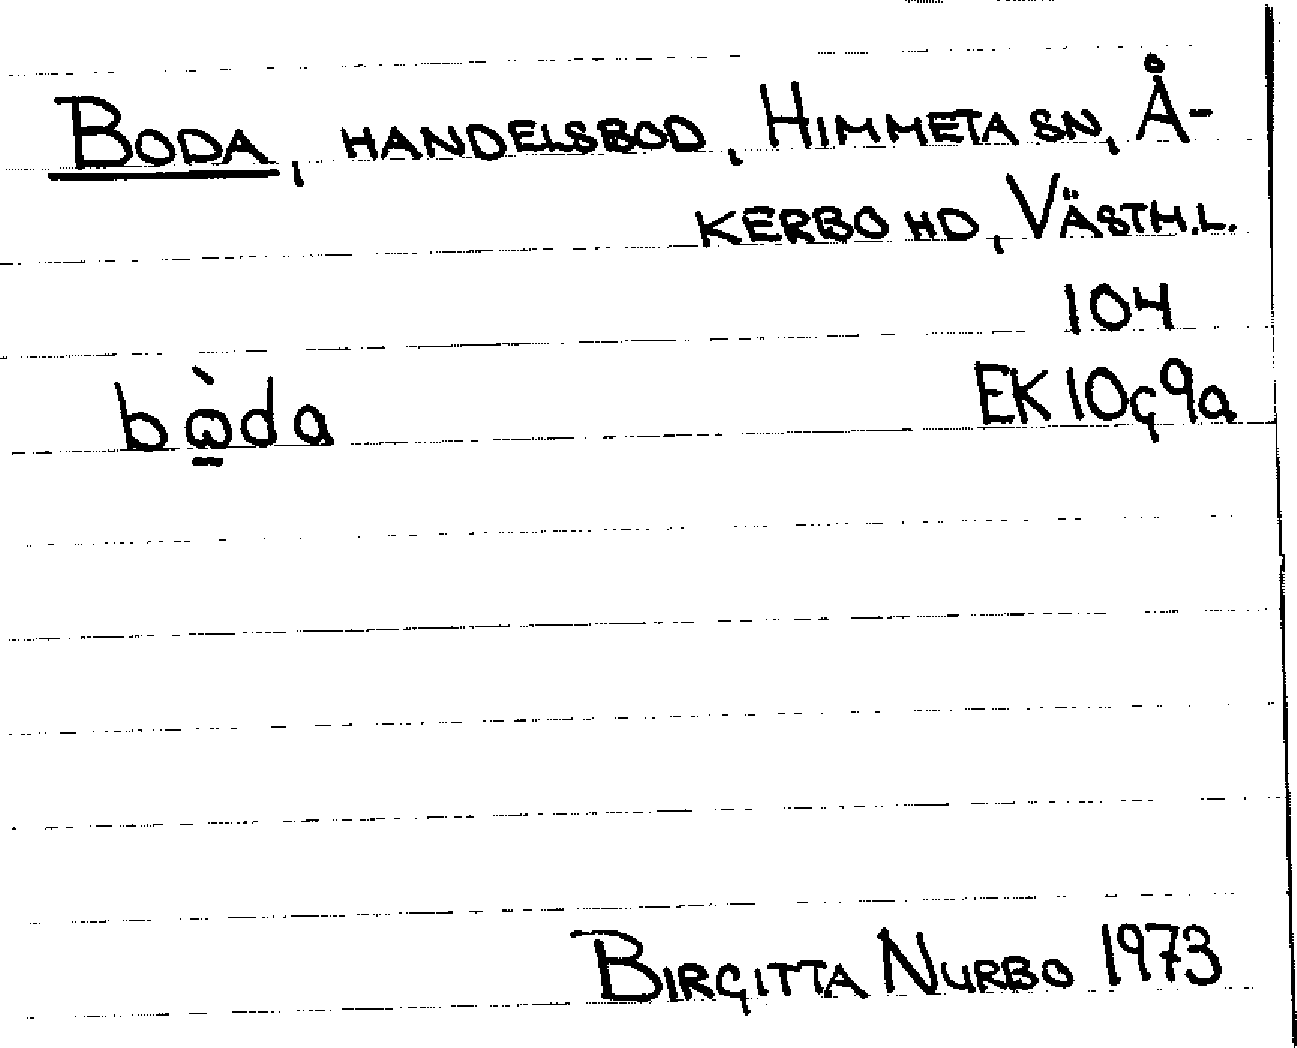 BODA, HANDELSBOD, HIMMETA SN, Å-
KERBO HD, VÄSTM.L.
104
bὼ̲da EK 10ç9a
BIRGITTA NURBO 1973